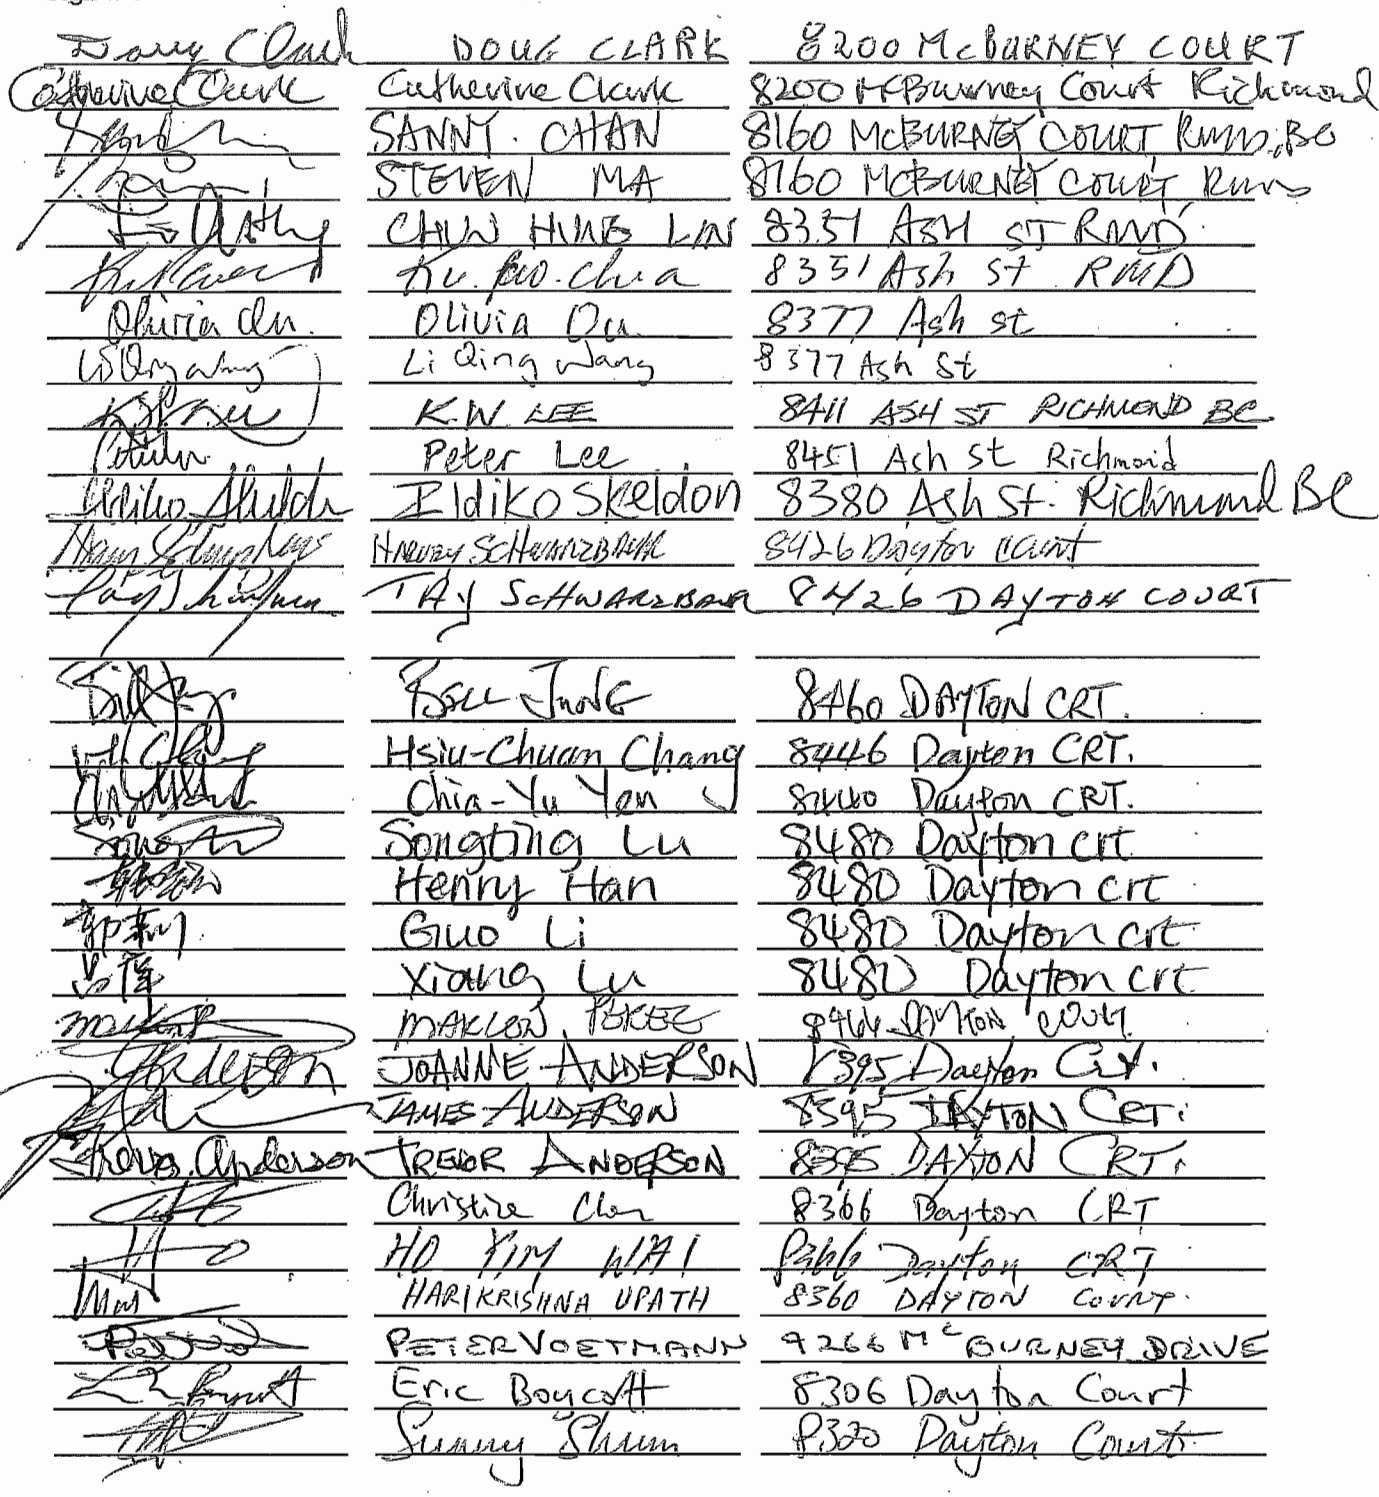 Doug Clark DOUG CLARK 8200 McBURNEY COURT
Catherine Clark Catherine Clark 8200 McBurney Court Richmond
SANNY. CHAN 8160 McBURNEY COURT RMD, BC
STEVEN MA 8160 McBURNEY COURT
CHUN HUNG LIN 8351 ASH ST RMD
8351 Ash St RMD
Olivia Ou. Olivia Ou 8377 Ash st
Li Qing Wang Li Qing Wang 8377 Ash St
K.W. LEE 8411 ASH ST RICHMOND BC
Peter Lee 8451 Ash St Richmond
Ildiko Skeldon 8380 Ash St. Richmond BC
HARVEY 8426 Dayton Court
TAY 8426 DAYTON COURT
BILL JUNG 8460 DAYTON CRT.
Hsiu-Chuan Chang 8446 Dayton CRT.
Chia-Yu Yen 8440 Dayton CRT.
Songting Lu 8480 Dayton crt
Henry Han 8480 Dayton crt
郭莉 Guo Li 8480 Dayton crt
Xiang Lu 8480 Dayton crt
MARLON PEREZ DAYTON COURT
Anderson JOANNE ANDERSON 8395 Dayton Crt.
JAMES ANDERSON 8395 DAYTON CRT.
Trevor Anderson TREVOR ANDERSON 8395 DAYTON CRT.
Christine Chen 8366 Dayton CRT
HO YIM WAI 8366 Dayton CRT
HARIKRISHNA UPATH 8360 DAYTON COURT.
PETER VOETMANN 9266 McBURNEY DRIVE
Eric Boycott 8306 Dayton Court
Sunny Shum 8320 Dayton Court